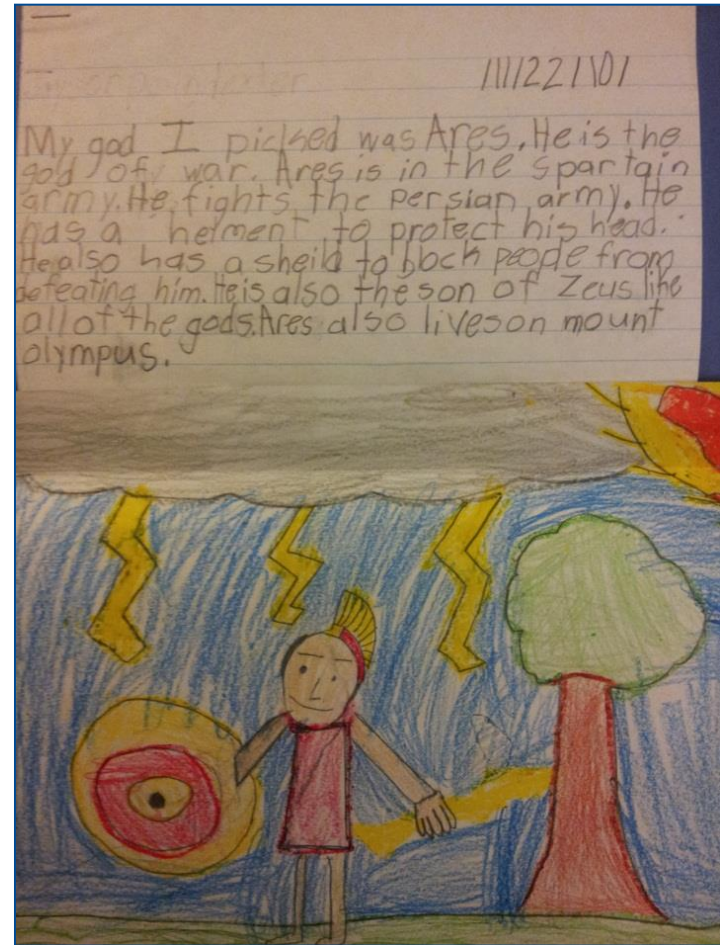 11/22/101
My god I picked was Ares. He is the
gold of war. Ares is in the spartain
army. He fights the persian army. He
has a helment to protect his head.
He also has a sheild to block peode from
defeating him. He is also the son of Zeus like
all of the gods. Ares also lives on mount
olympus.